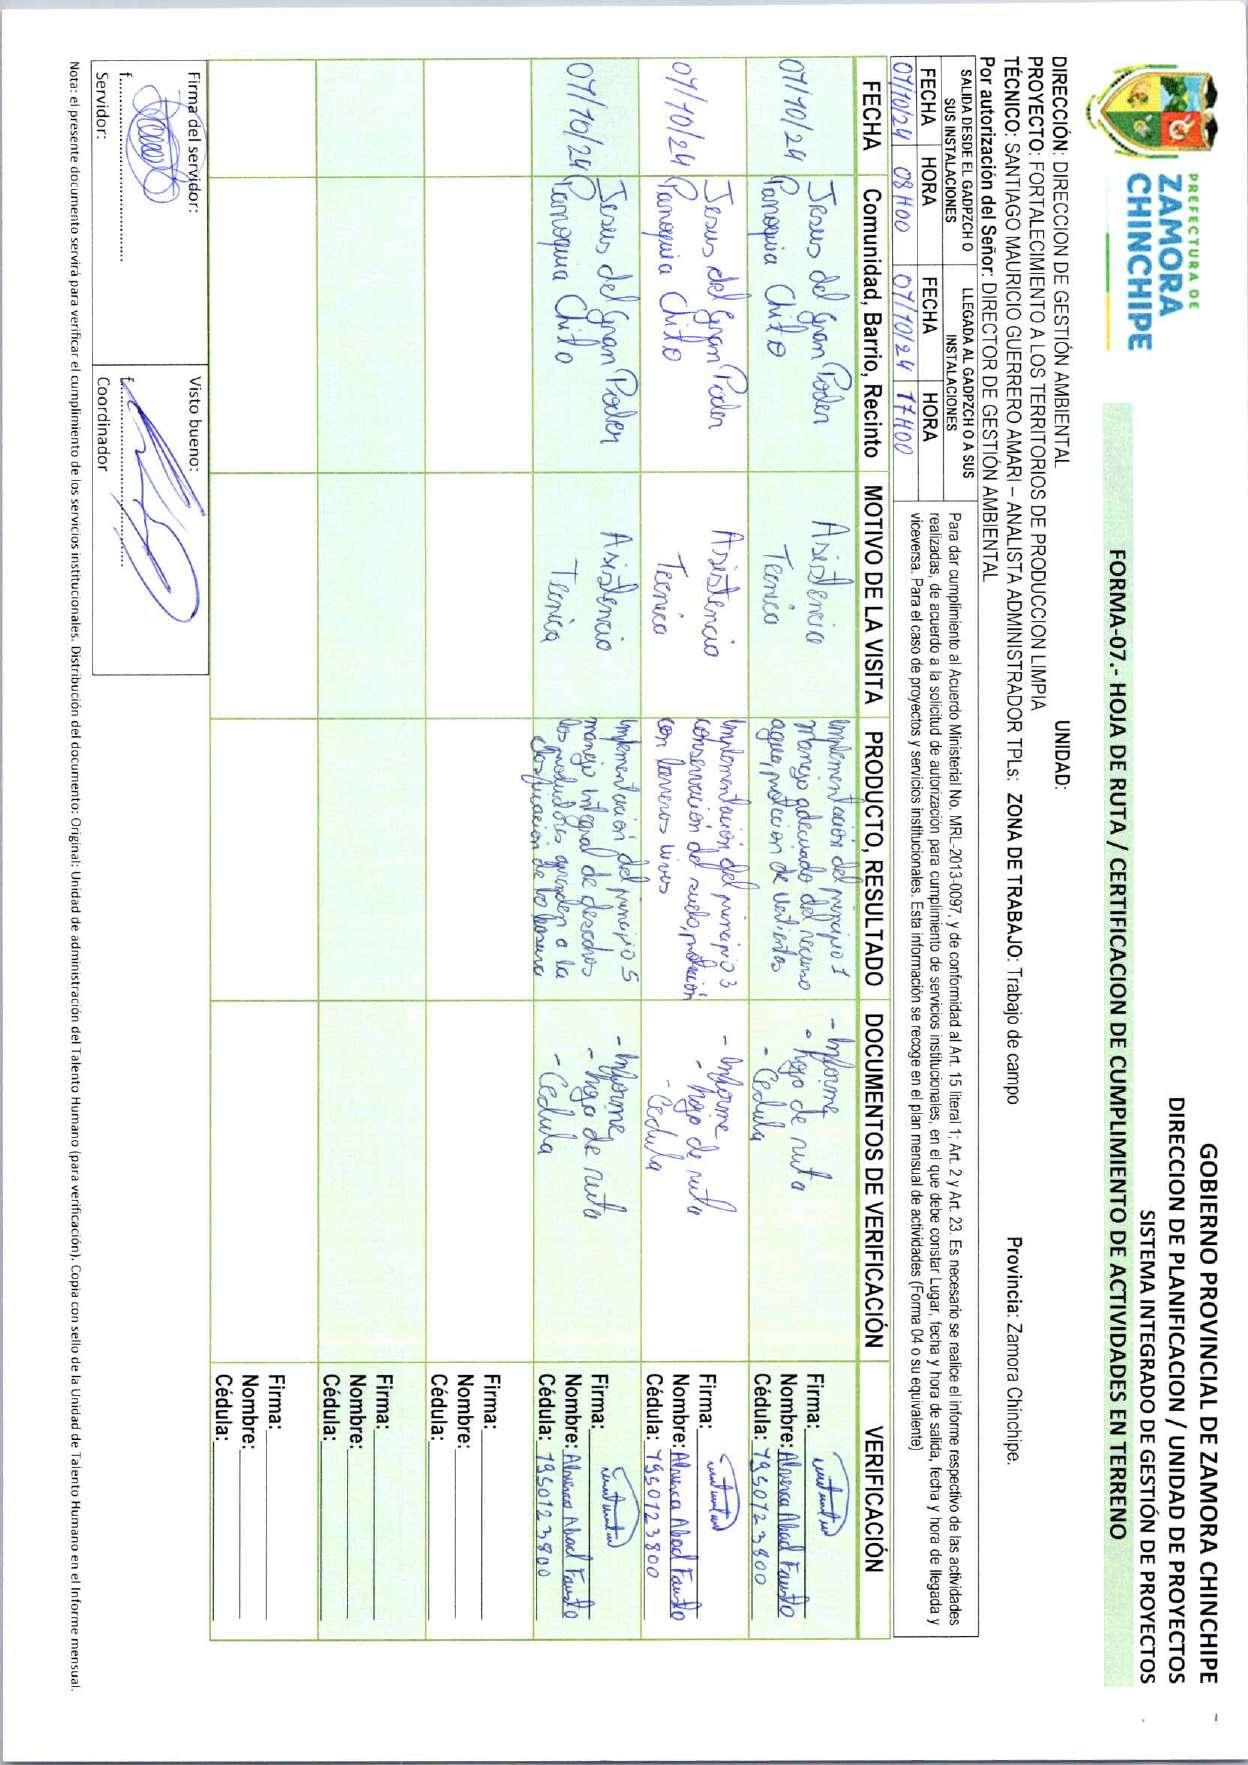 PREFECTURA DE
ZAMORA
CHINCHIPE
GOBIERNO PROVINCIAL DE ZAMORA CHINCHIPE
DIRECCION DE PLANIFICACION / UNIDAD DE PROYECTOS
SISTEMA INTEGRADO DE GESTIÓN DE PROYECTOS
FORMA-07.- HOJA DE RUTA / CERTIFICACION DE CUMPLIMIENTO DE ACTIVIDADES EN TERRENO
DIRECCIÓN: DIRECCION DE GESTIÓN AMBIENTAL UNIDAD:
PROYECTO: FORTALECIMIENTO A LOS TERRITORIOS DE PRODUCCION LIMPIA
TÉCNICO: SANTIAGO MAURICIO GUERRERO AMARI – ANALISTA ADMINISTRADOR TPLs: ZONA DE TRABAJO: Trabajo de campo Provincia: Zamora Chinchipe.
Por autorización del Señor: DIRECTOR DE GESTIÓN AMBIENTAL
SALIDA DESDE EL GADPZCH O SUS INSTALACIONES
LLEGADA AL GADPZCH O A SUS INSTALACIONES
FECHA HORA FECHA HORA
07/10/24 08H00 07/10/24 17H00
Para dar cumplimiento al Acuerdo Ministerial No. MRL-2013-0097, y de conformidad al Art. 15 literal 1; Art. 2 y Art. 23. Es necesario se realice el informe respectivo de las actividades
realizadas, de acuerdo a la solicitud de autorización para cumplimiento de servicios institucionales, en el que debe constar Lugar, fecha y hora de salida, fecha y hora de llegada y
viceversa. Para el caso de proyectos y servicios institucionales. Esta información se recoge en el plan mensual de actividades (Forma 04 o su equivalente)
FECHA Comunidad, Barrio, Recinto MOTIVO DE LA VISITA PRODUCTO, RESULTADO DOCUMENTOS DE VERIFICACIÓN VERIFICACIÓN
07/10/24
Jesus del Gran Poder
Parroquia Chito
Asistencia
Tecnica
Implementación del principio 1
manejo adecuado del recurso
agua, proteccion de vertientes
- Informe
- hoja de ruta
- Cedula
Firma:
Nombre: Alverca Abad Fausto
Cédula: 1950123800
07/10/24
Jesus del Gran Poder
Parroquia Chito
Asistencia
Tecnica
Implementación del principio 3
conservación del suelo, protección
con barreras vivas
- Informe
- hoja de ruta
- Cedula
Firma:
Nombre: Alverca Abad Fausto
Cédula: 1950123800
07/10/24
Jesus del Gran Poder
Parroquia Chito
Asistencia
Tecnica
Implementación del principio 5
manejo integral de desechos
los productores aprenden a la
clasificacion de la basura
- Informe
- hoja de ruta
- Cedula
Firma:
Nombre: Alverca Abad Fausto
Cédula: 1950123800
Firma:
Nombre:
Cédula:
Firma:
Nombre:
Cédula:
Firma:
Nombre:
Cédula:
Firma del servidor:
f.
Servidor:
Visto bueno:
f.
Coordinador
Nota: el presente documento servirá para verificar el cumplimiento de los servicios institucionales. Distribución del documento: Original: Unidad de administración del Talento Humano (para verificación). Copia con sello de la Unidad de Talento Humano en el Informe mensual.